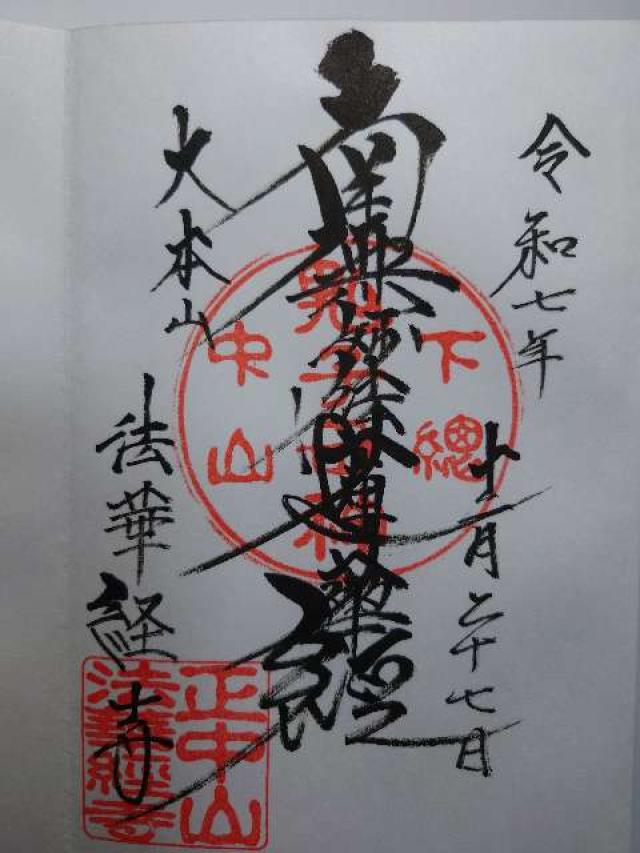 令和七年
十二月二十七日
南無妙法蓮華経
下總
中山
大本山
法華経寺
正中山
法華経寺